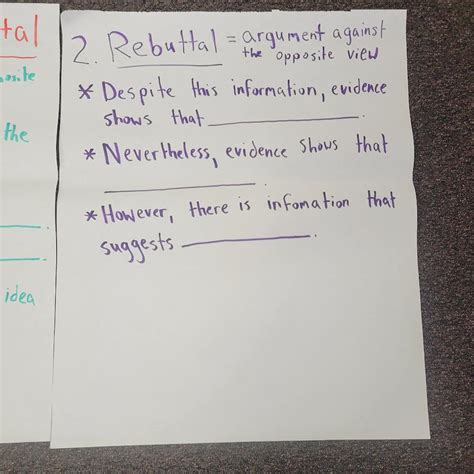 tal
osite
the
idea
2. Rebuttal = argument against
the opposite view
* Despite this information, evidence
shows that ____________.
* Nevertheless, evidence shows that
____________.
* However, there is infomation that
suggests ____________.